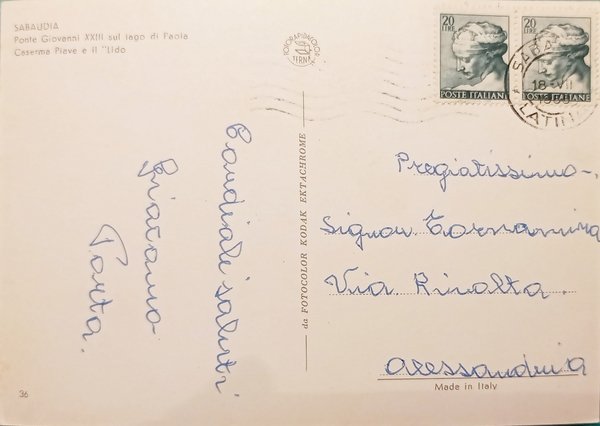 SABAUDIA
Ponte Giovanni XXIII sul lago di Paola
Caserma Piave e il "Lido
FOTORAPIDACOLOR
TERNI
20
LIRE
POSTE ITALIANE
20
LIRE
POSTE ITALIANE
18 VII
LATINA
Candiale saluti
Giacomo
Porta.
da FOTOCOLOR KODAK EKTACHROME
Pregiatissimo
Signor
Via Rivolta.
Alessandria
Made in Italy
36